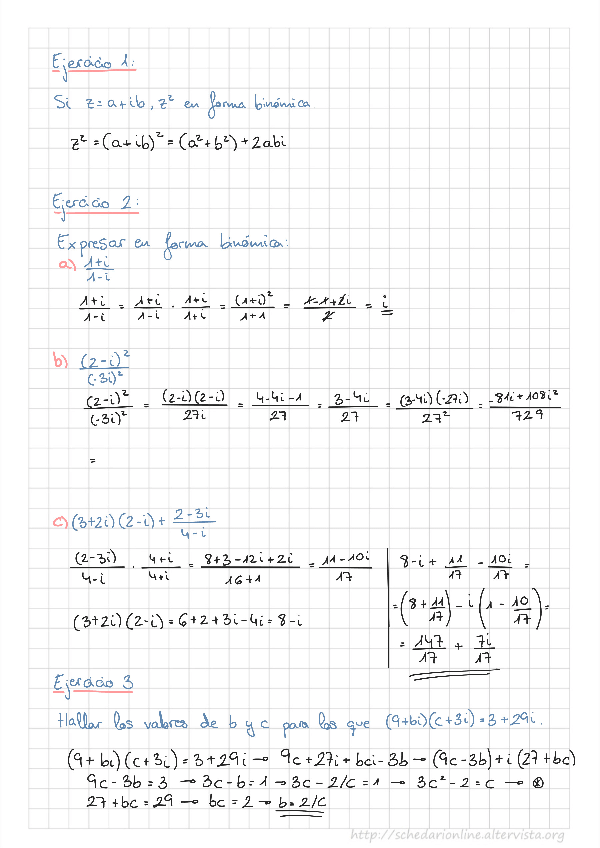 Ejercicio 1:
Si z = a+ib, z² en forma binómica
z² = (a+ib)² = (a²+b²) + 2abi
Ejercicio 2:
Expresar en forma binómica:
a) (1+i)/(1-i)
(1+i)/(1-i) = (1+i)/(1-i) · (1+i)/(1+i) = (1+i)²/(1+1) = (1-1+2i)/2 = i
b) (2-i)²/(-3i)²
(2-i)²/(-3i)² = (2-i)(2-i)/27i = (4-4i-1)/27 = (3-4i)/27 = (3-4i)(-27i)/27² = (-81i+108i²)/729
=
c) (3+2i)(2-i) + (2-3i)/(4-i)
(2-3i)/(4-i) · (4+i)/(4+i) = (8+3-12i+2i)/(16+1) = (11-10i)/17
(3+2i)(2-i) = 6+2+3i-4i = 8-i
8-i + 11/17 - 10i/17 =
= (8 + 11/17) - i(1 - 10/17) =
= 147/17 + 7i/17
Ejercicio 3
Hallar los valores de b y c para los que (9+bi)(c+3i) = 3+29i.
(9+bi)(c+3i) = 3+29i → 9c+27i+bci-3b → (9c-3b)+i(27+bc)
9c-3b = 3 → 3c-b = 1 → 3c-2/c = 1 → 3c²-2 = c →
27+bc = 29 → bc = 2 → b = 2/c
http://schedarionline.altervista.org